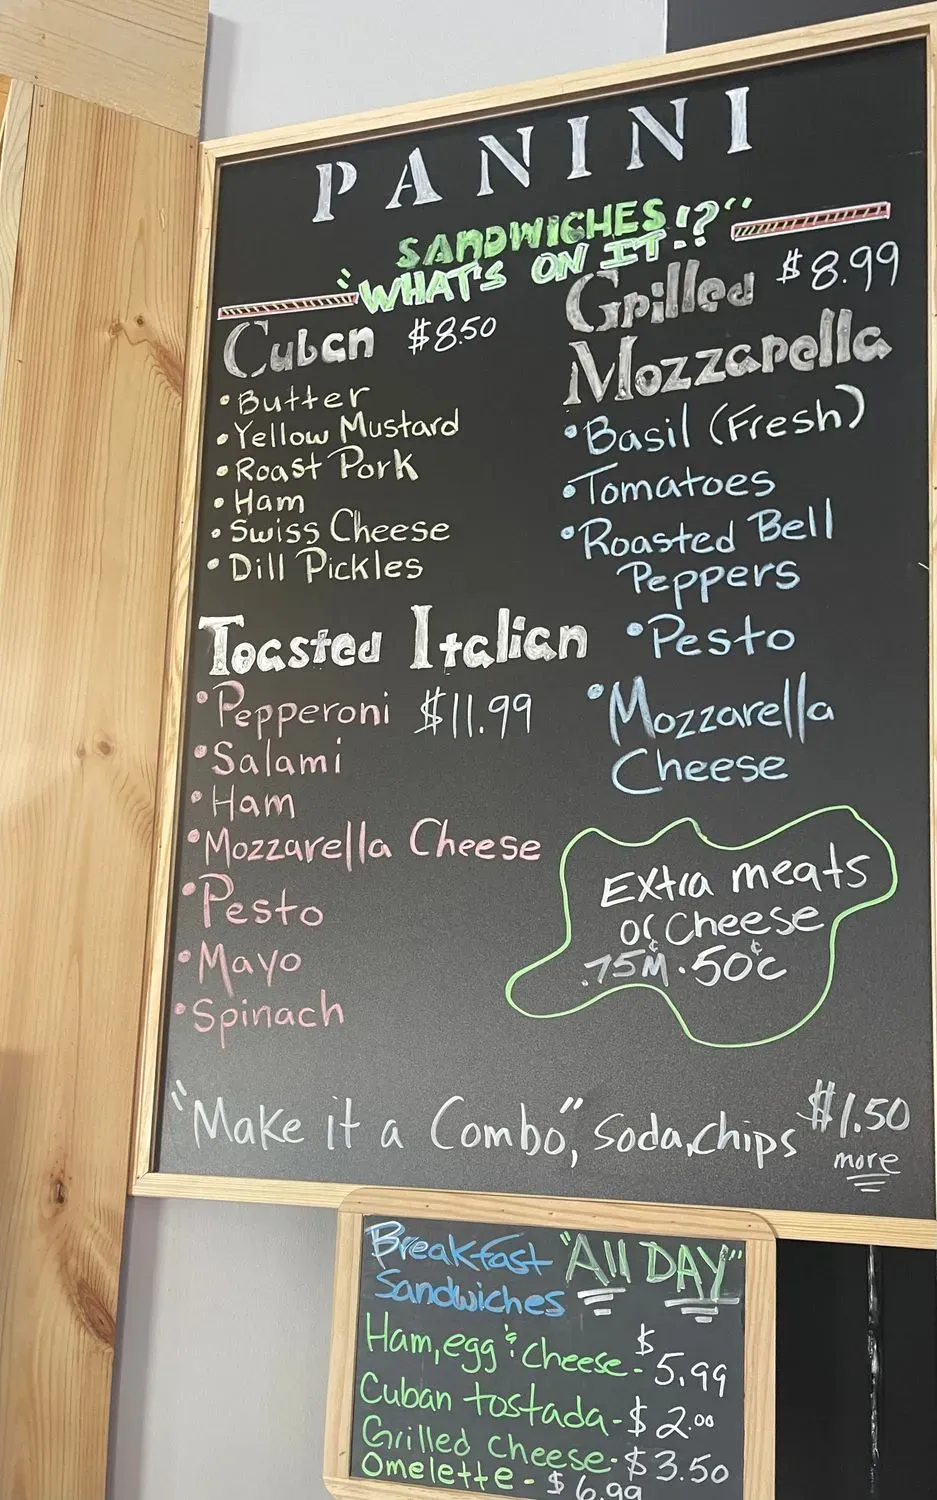 PANINI
SANDWICHES
"WHAT'S ON IT!?"
Cuban $8.50
• Butter
• Yellow Mustard
• Roast Pork
• Ham
• Swiss Cheese
• Dill Pickles
Toasted Italian
• Pepperoni $11.99
• Salami
• Ham
• Mozzarella Cheese
• Pesto
• Mayo
• Spinach
Grilled $8.99
Mozzarella
• Basil (Fresh)
• Tomatoes
• Roasted Bell
Peppers
• Pesto
• Mozzarella
Cheese
Extra meats
or Cheese
.75¢M .50¢c
"Make it a Combo", Soda, chips $1.50
more
Breakfast "All DAY"
Sandwiches
Ham, egg & cheese - $5.99
Cuban tostada - $2.00
Grilled cheese - $3.50
Omelette - $6.99